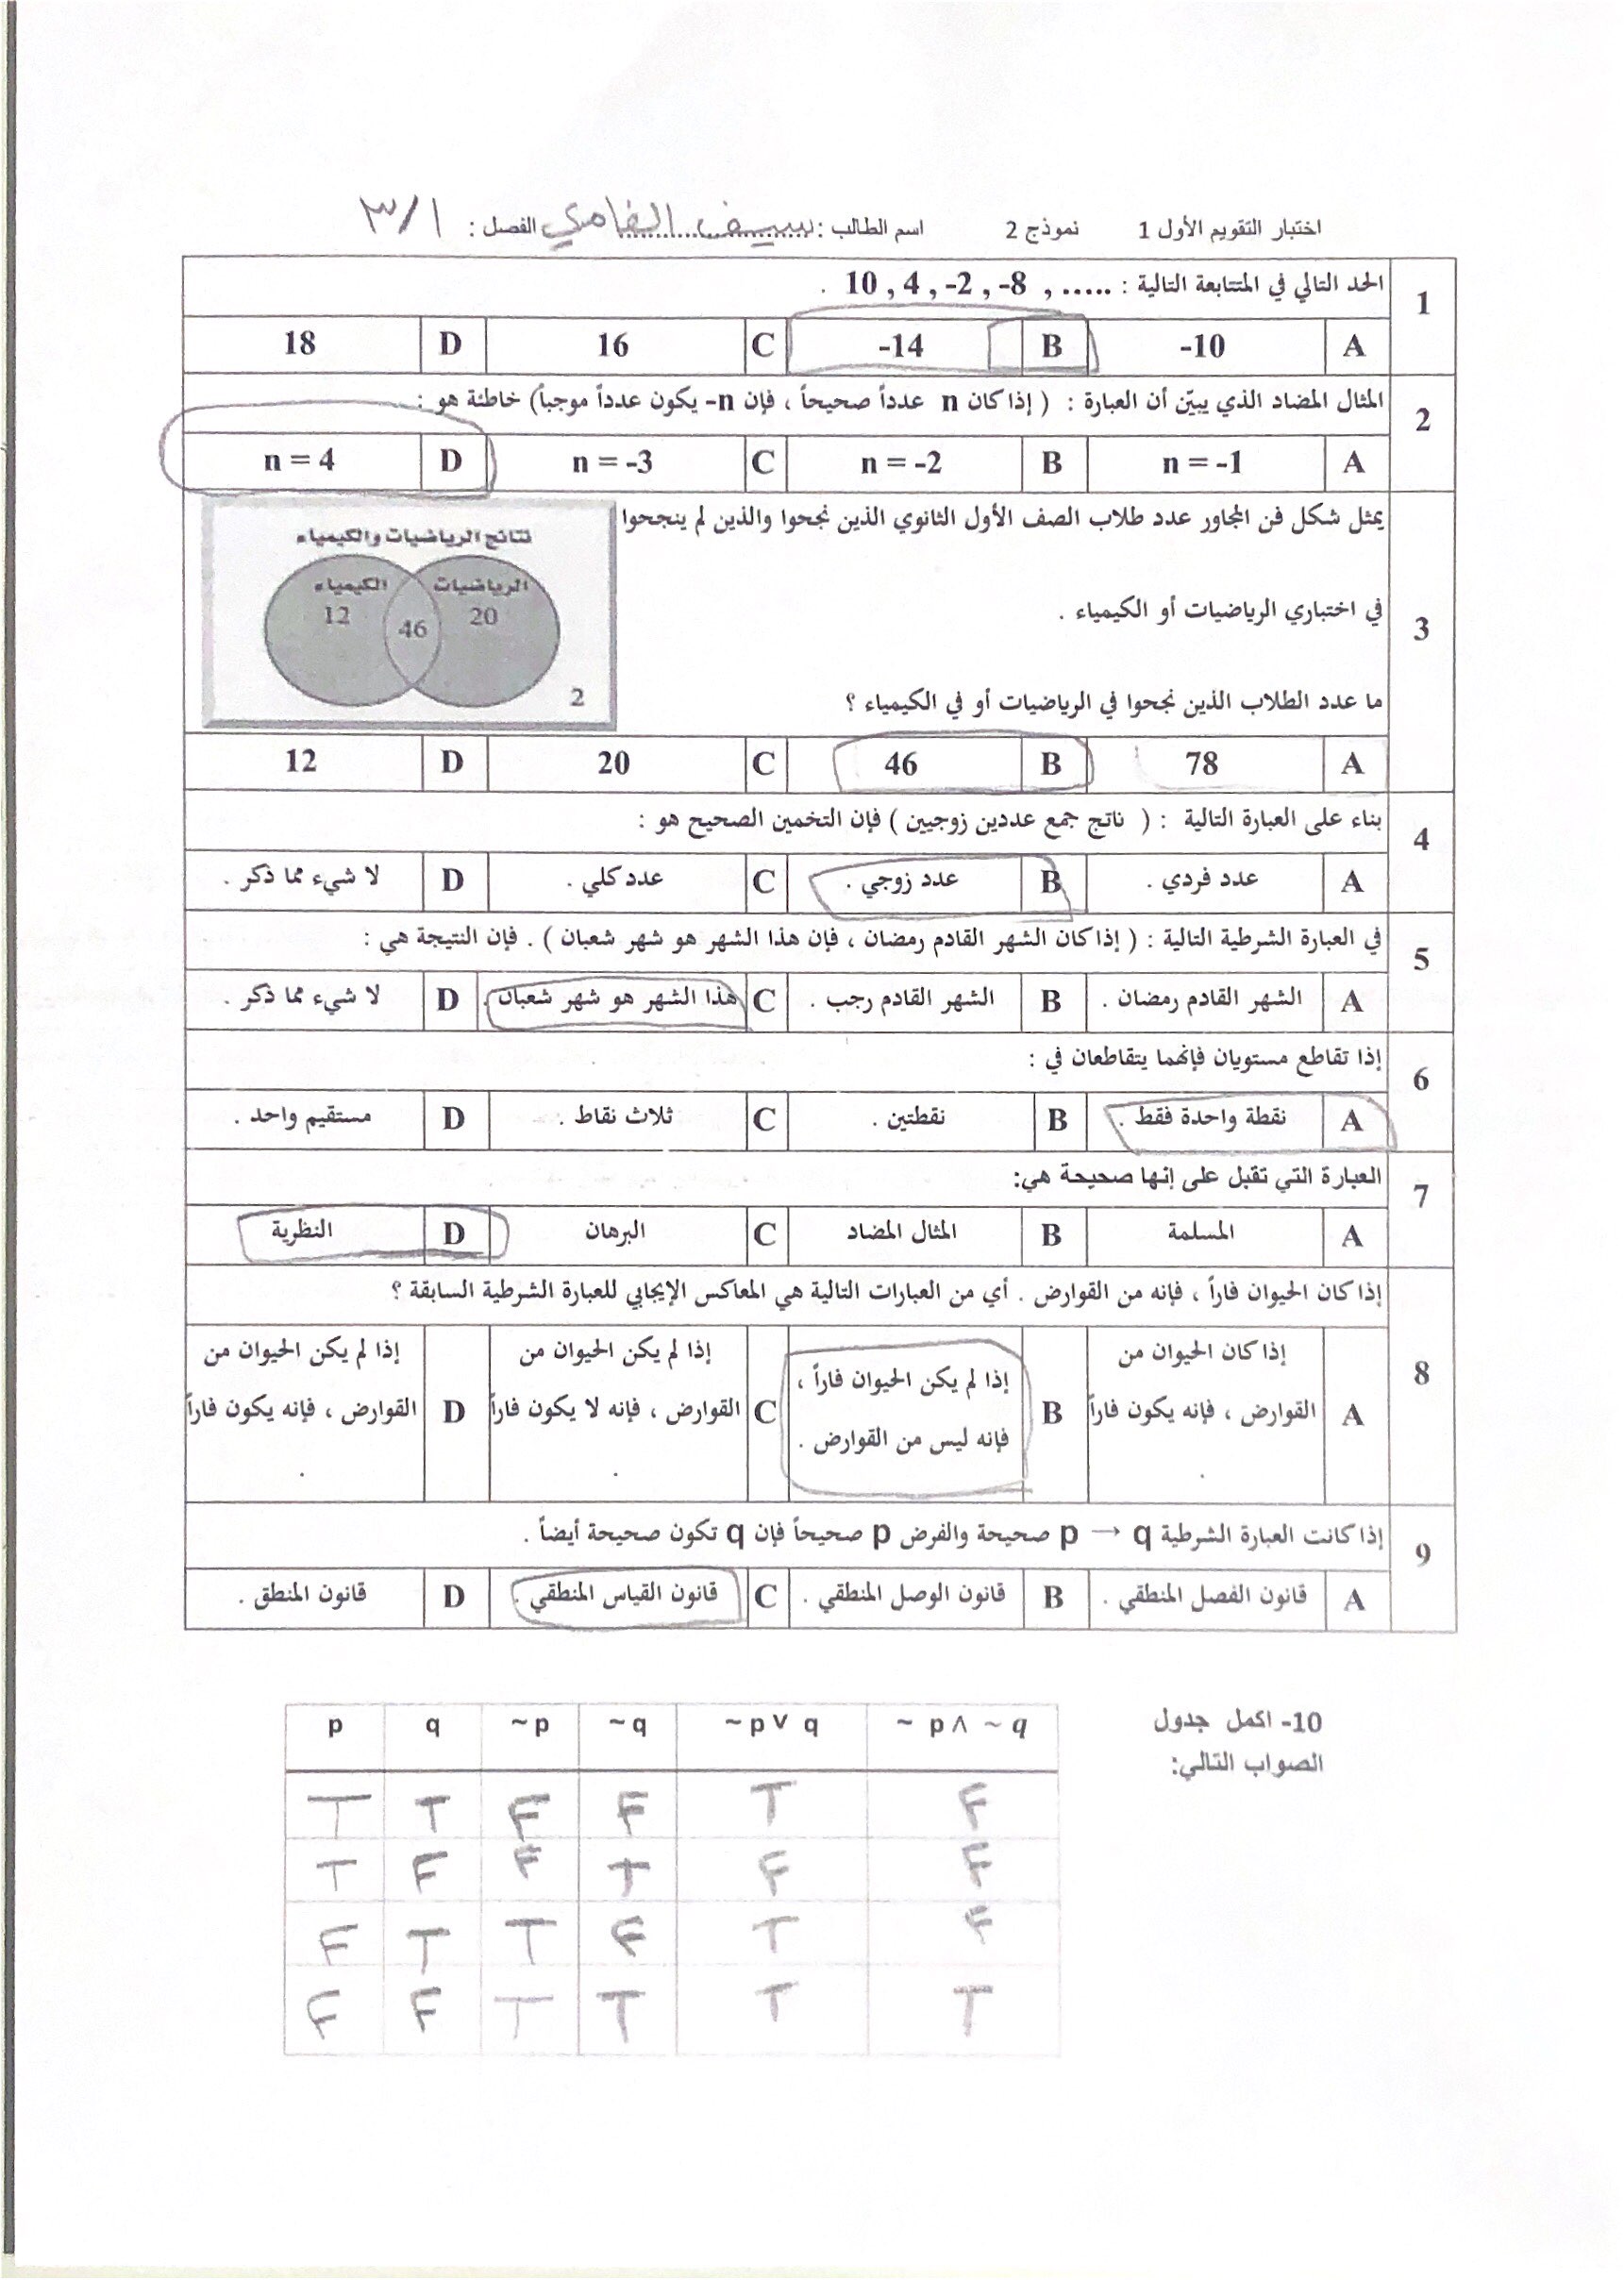 اختبار التقويم الأول 1 نموذج 2 اسم الطالب : سيف الغامدي الفصل : ١/٣
1 الحد التالي في المتتابعة التالية : 10 , 4 , -2 , -8 , ..... .
A -10 B -14 C 16 D 18
2 المثال المضاد الذي يبيّن أن العبارة : ( إذا كان n عدداً صحيحاً ، فإن n- يكون عدداً موجباً) خاطئة هو :
A n = -1 B n = -2 C n = -3 D n = 4
3 يمثل شكل فن المجاور عدد طلاب الصف الأول الثانوي الذين نجحوا والذين لم ينجحوا
في اختباري الرياضيات أو الكيمياء .
ما عدد الطلاب الذين نجحوا في الرياضيات أو في الكيمياء ؟
نتائج الرياضيات والكيمياء
الرياضيات الكيمياء
20 46 12
2
A 78 B 46 C 20 D 12
4 بناء على العبارة التالية : ( ناتج جمع عددين زوجيين ) فإن التخمين الصحيح هو :
A عدد فردي . B عدد زوجي . C عدد كلي . D لا شيء مما ذكر .
5 في العبارة الشرطية التالية : ( إذا كان الشهر القادم رمضان ، فإن هذا الشهر هو شهر شعبان ) . فإن النتيجة هي :
A الشهر القادم رمضان . B الشهر القادم رجب . C هذا الشهر هو شهر شعبان . D لا شيء مما ذكر .
6 إذا تقاطع مستويان فإنهما يتقاطعان في :
A نقطة واحدة فقط . B نقطتين . C ثلاث نقاط . D مستقيم واحد .
7 العبارة التي تقبل على إنها صحيحة هي:
A المسلمة B المثال المضاد C البرهان D النظرية
8 إذا كان الحيوان فاراً ، فإنه من القوارض . أي من العبارات التالية هي المعاكس الإيجابي للعبارة الشرطية السابقة ؟
A إذا كان الحيوان من القوارض ، فإنه يكون فاراً .
B إذا لم يكن الحيوان فاراً ، فإنه ليس من القوارض .
C إذا لم يكن الحيوان من القوارض ، فإنه لا يكون فاراً .
D إذا لم يكن الحيوان من القوارض ، فإنه يكون فاراً .
9 إذا كانت العبارة الشرطية p → q صحيحة والفرض p صحيحاً فإن q تكون صحيحة أيضاً .
A قانون الفصل المنطقي . B قانون الوصل المنطقي . C قانون القياس المنطقي . D قانون المنطق .
10- اكمل جدول
الصواب التالي:
p q ~p ~q ~p ∨ q ~ p ∧ ~ q
T T F F T F
T F F T F F
F T T F T F
F F T T T T